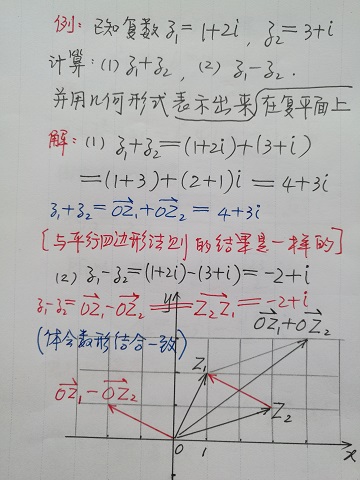 例: 已知复数 z₁=1+2i, z₂=3+i
计算: (1) z₁+z₂, (2) z₁-z₂.
并用几何形式表示出来在复平面上
解: (1) z₁+z₂=(1+2i)+(3+i)
=(1+3)+(2+1)i=4+3i
z₁+z₂=OZ₁+OZ₂=4+3i
[与平行四边形法则的结果是一样的]
(2) z₁-z₂=(1+2i)-(3+i)=-2+i
z₁-z₂=OZ₁-OZ₂=Z₂Z₁=-2+i
(体会数形结合一致)
y
OZ₁+OZ₂
Z₁
OZ₁-OZ₂
Z₂
0 1 x